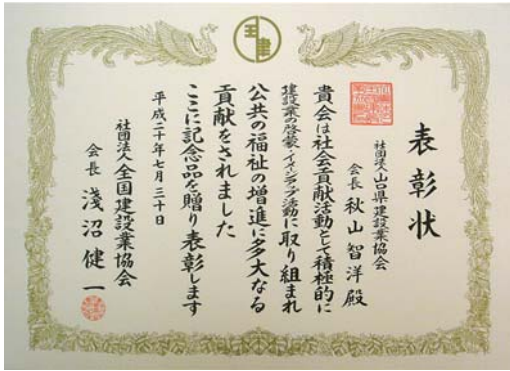 表彰状
社団法人山口県建設業協会
会長 秋山智洋殿
貴会は社会貢献活動として積極的に
建設業の啓蒙・イメージアップ活動に取り組まれ
公共の福祉の増進に多大なる
貢献をされました
ここに記念品を贈り表彰します
平成二十年七月三十日
社団法人全国建設業協会
会長 淺沼健一